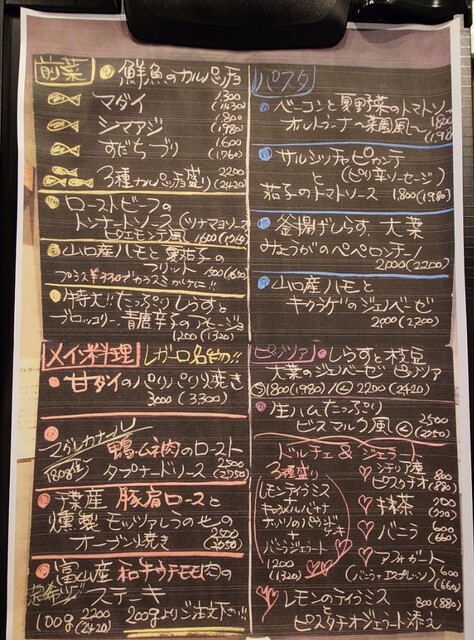 前菜
鮮魚のカルパッチョ
マダイ 1300 (1430)
シマアジ 1800 (1980)
すだちブリ 1600 (1760)
3種カルパッチョ盛り 2200 (2420)
ローストビーフの
トンナートソース(ツナマヨソース)
ピエモンテ風 1600 (1760)
山口産ハモと
フリット
特大!!たっぷりしらすと
ブロッコリー、青唐辛子のアヒージョ
1200 (1320)
メイン料理
レガーロ名物!!
甘ダイのパリパリ焼き
3000 (3300)
マグレカナール
鴨ムネ肉のロースト
180g位
タプナードソース
千葉産 豚肩ロースと
燻製モッツァレラチーズの
オーブン焼き
富山産 和牛ウチモモ肉の
ステーキ
100g 2200 (2420)
200gよりご注文下さい!!
パスタ
ベーコンと夏野菜のトマトソース
オルトラーナ〜菜園風〜 1800 (1980)
サルシッチャピカンテ
(ピリ辛ソーセージ)
と
茄子のトマトソース 1800 (1980)
釜揚げしらす、大葉
みょうがのペペロンチーノ
2000 (2200)
山口産ハモと
キクラゲのジェノベーゼ
2000 (2200)
ピッツァ
しらすと枝豆
大葉のジェノベーゼ ピッツァ
Ⓢ1800 (1980) / Ⓛ 2200 (2420)
生ハムたっぷり
ビスマルク風 Ⓛ 2500 (2750)
ドルチェ & ジェラート
3種盛り
レモンティラミス
キャラメルバナナ
ナッツのパウンド
ケーキ
+
バニラジェラート
1200
(1320)
シチリア産
ピスタチオ 800 (880)
抹茶 700 (770)
バニラ 600 (660)
アフォガート
(バニラ+エスプレッソ) 600 (660)
レモンのティラミス 800 (880)
と
ピスタチオジェラート添え